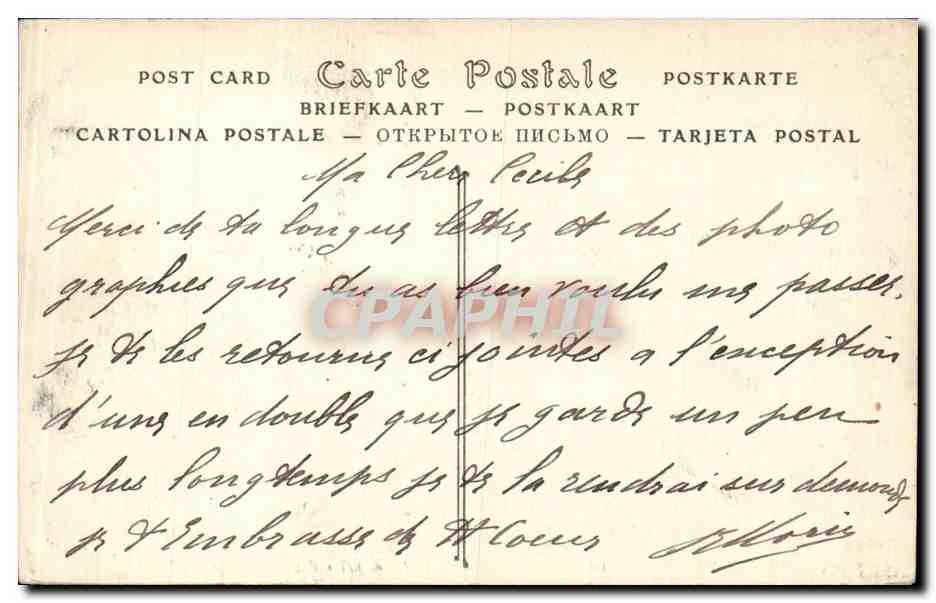 POST CARD Carte Postale POSTKARTE
BRIEFKAART — POSTKAART
CARTOLINA POSTALE — ОТКРЫТОЕ ПИСЬМО — TARJETA POSTAL
Ma Chere Cecile
Merci de ta longue lettre et des photo
graphies que tu as bien voulu me passer.
CPAPHIL
je te les retourne ci jointes a l'exception
d'une en double que je garde un peu
plus longtemps je te la rendrai sur demande
je t'Embrasse de tt Coeur